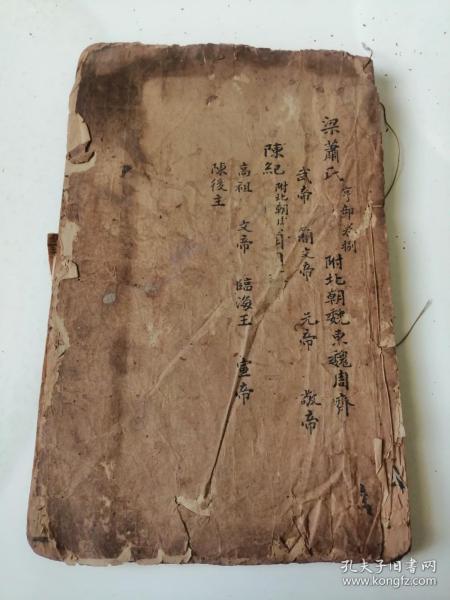 亨部 第捌
梁蕭氏 附北朝魏東魏周齊
武帝 簡文帝 元帝 敬帝
陳紀 附北朝
高祖 文帝 臨海王 宣帝
陳後主
孔夫子旧书网
www.kongfz.com